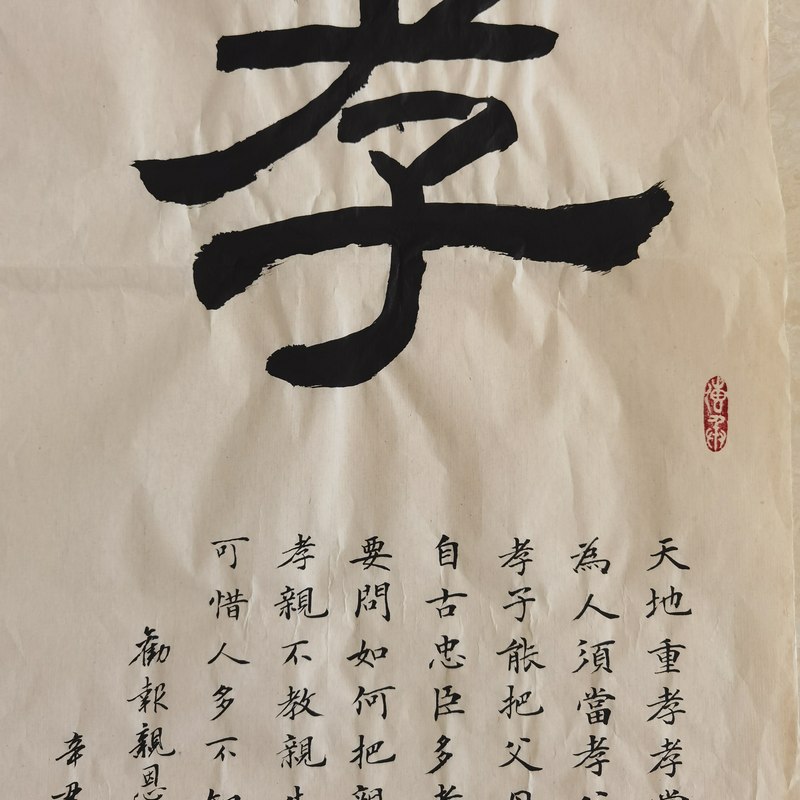 孝
天地重孝孝當
為人須當孝
孝子能把父
自古忠臣多孝
要問如何把親
孝親不教親
可惜人多不
勸報親恩
辛